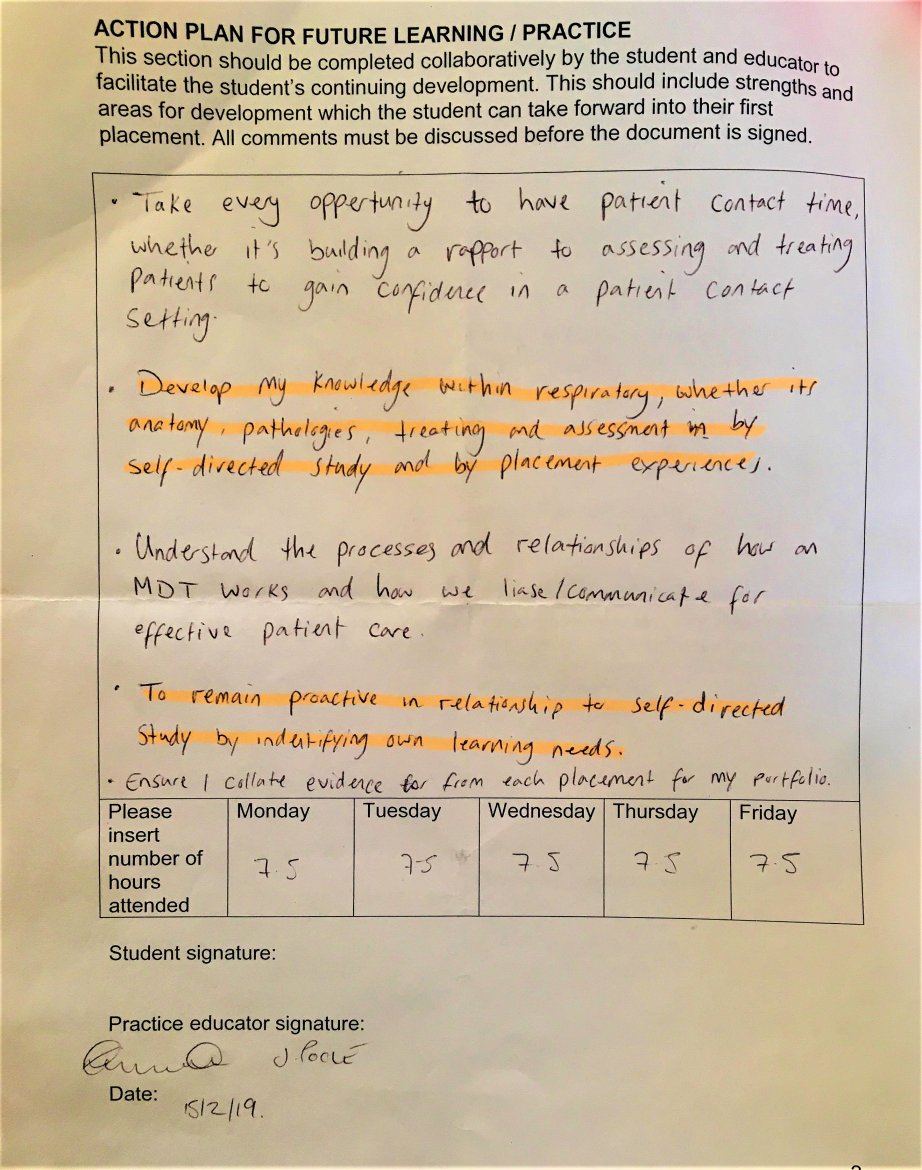 ACTION PLAN FOR FUTURE LEARNING / PRACTICE
This section should be completed collaboratively by the student and educator to
facilitate the student's continuing development. This should include strengths and
areas for development which the student can take forward into their first
placement. All comments must be discussed before the document is signed.
• Take every oppertunity to have patient contact time,
whether it's building a rapport to assessing and treating
patients to gain confidence in a patient contact
setting.
• Develop my knowledge within respiratory, whether its
anatomy, pathologies, treating and assessment in by
self-directed study and by placement experiences.
• Understand the processes and relationships of how an
MDT works and how we liase/communicate for
effective patient care.
• To remain proactive in relationship to self-directed
study by indentifying own learning needs.
• Ensure I collate evidence for from each placement for my portfolio.
Please insert number of hours attended Monday Tuesday Wednesday Thursday Friday
7.5 7.5 7.5 7.5 7.5
Student signature:
Practice educator signature:
Date:
15/2/19.